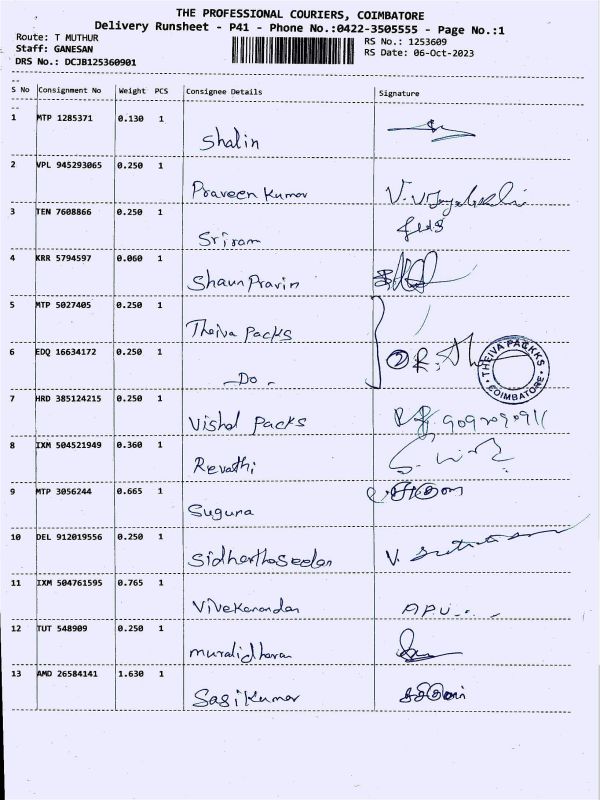 THE PROFESSIONAL COURIERS, COIMBATORE
Delivery Runsheet - P41 - Phone No.:0422-3505555 - Page No.:1
Route: T MUTHUR
Staff: GANESAN
DRS No.: DCJB125360901
RS No.: 1253609
RS Date: 06-Oct-2023
S No Consignment No Weight PCS Consignee Details Signature
1 MTP 1285371 0.130 1
Shalin
2 VPL 945293065 0.250 1
Praveen Kumar
3 TEN 7608866 0.250 1
Sriram
4 KRR 5794597 0.060 1
Shaun Pravin
5 MTP 5027405 0.250 1
Theiva Packs
6 EDQ 16634172 0.250 1
-Do-
THEIVA PACKKS
COIMBATORE
7 HRD 385124215 0.250 1
Vishal Packs
8 IXM 504521949 0.360 1
Revathi
9 MTP 3056244 0.665 1
Suguna
10 DEL 912019556 0.250 1
Sidharthaseelan
11 IXM 504761595 0.765 1
Vivekanandan
12 TUT 548909 0.250 1
muralidharan
13 AMD 26584141 1.630 1
Sasi Kumar